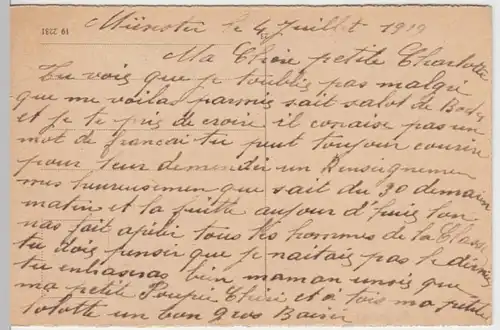 19 2281
Münster le 4 Juillet 1919
Ma Chère petite Charlotte
Tu vois que je toublis pas malgre
que me voila parmis sait salot de Boche
et je te pris de croire il conaise pas un
mot de francai tu peut toujour courire
pour leur demender un Renseignemen
mes heureusemen que sait du 90 demain
matin et la fuitte aujour d'huis lon
nas fait apeler tous les hommes de la Classe
tu dois penser que je naitais pas le dernié
tu enbraseras bien maman unsis que
ma petite Poupée Chérie et a tois ma petite
tolotte un bon gros Baisir